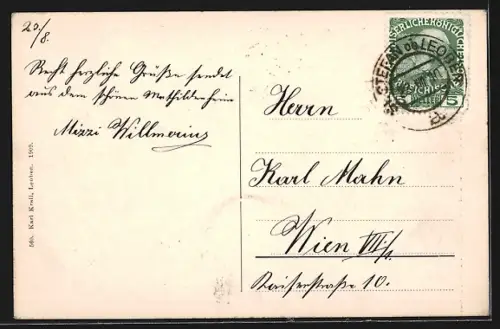 20/8.
Recht herzliche Grüße sendet
aus dem schönen Mathildenheim
Mizzi Willmorius
560. Karl Krall, Leoben. 1909.
KAISERLICHE KÖNIGLICHE
ST. STEFAN ob LEOBEN
5
Herrn
Karl Mahn
Wien VII/1
Kaiserstraße 10.